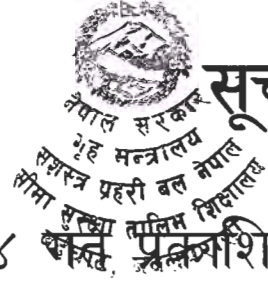 सूच
नेपाल सरकार
गृह मन्त्रालय
सशस्त्र प्रहरी बल नेपाल
सीमा सुरक्षा तालिम शिक्षालय
४ गते प्रकाशि